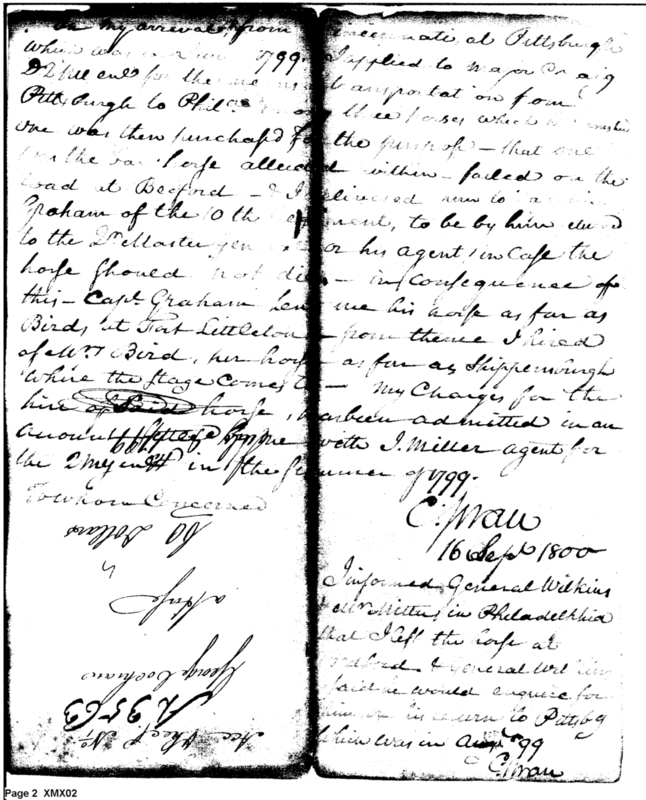 On my arrival from Cincinnati at Pittsburgh
which was in 1799. I applied to Major Craig
D2MGenl for the means transportation from
Pittsburgh to Phila. three horses which
one was then purchas'd for the purpose - that one
was the bay horse alluded within - failed on the
road at Bedford - & I delivered him to
Graham of the 10th Regiment, to be by him
to the Qr Master Genl or his agent in Case the
horse should not die - in consequence of
this - Capt. Graham me his horse as far as
Birds at Fort Littleton - from thence I hired
of Mrs Bird, her horse as far as Shippensburgh
Where the Stage comes to - My Charges for the
hire of Said horse, has been admitted in an
account with J. Miller agent for
the 2MGenl in the Summer of 1799.
To whom Concerned
C. Swan
16 Sept 1800
I informed General Wilkins
& Mr Miller in Philadelphia
that I left the horse at
Bedford & General Wilkins
said he would enquire for
him on his return to Pittsbg
which was in Augt 99
C Swan
See Sheet No.
A 3563
George Cochran
a horse
60 Dollars